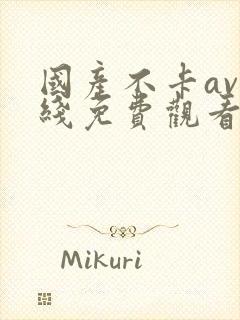 國產不卡av
綫免費觀看
Mikuri